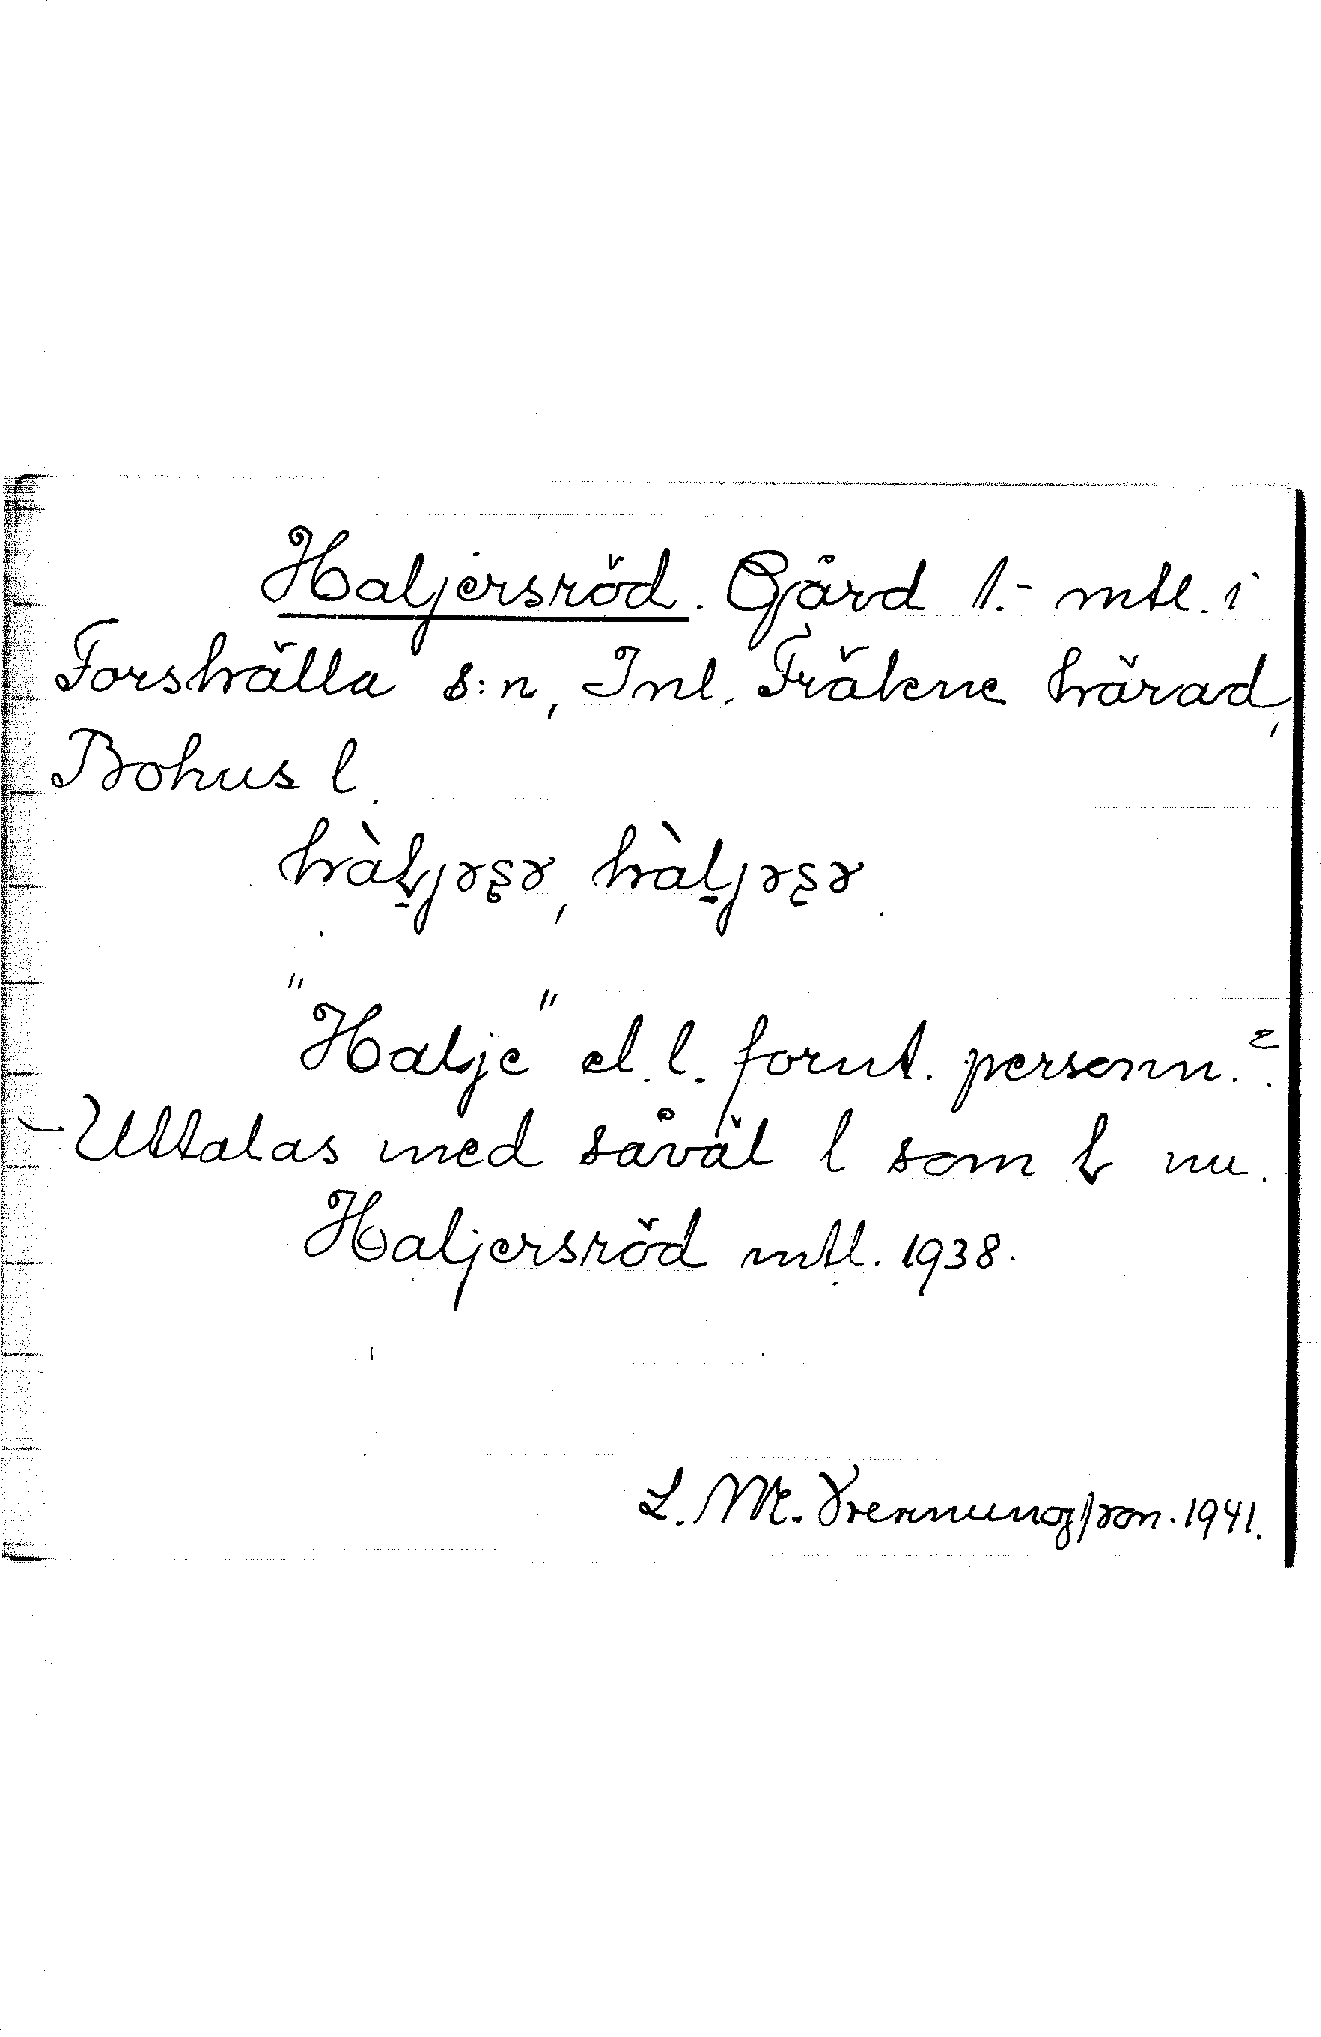 Haljersröd. Gård 1.- mtl. i
Forshälla s:n, Inl. Fräkne härad,
Bohus l.
hàḷjɘʂɘ, hàl̠jɘʂɘ
"Halje" el. l. fornt. personn.?
- Uttalas med såväl l som ł nu.
Haljersröd mtl. 1938.
L. M. 1941.